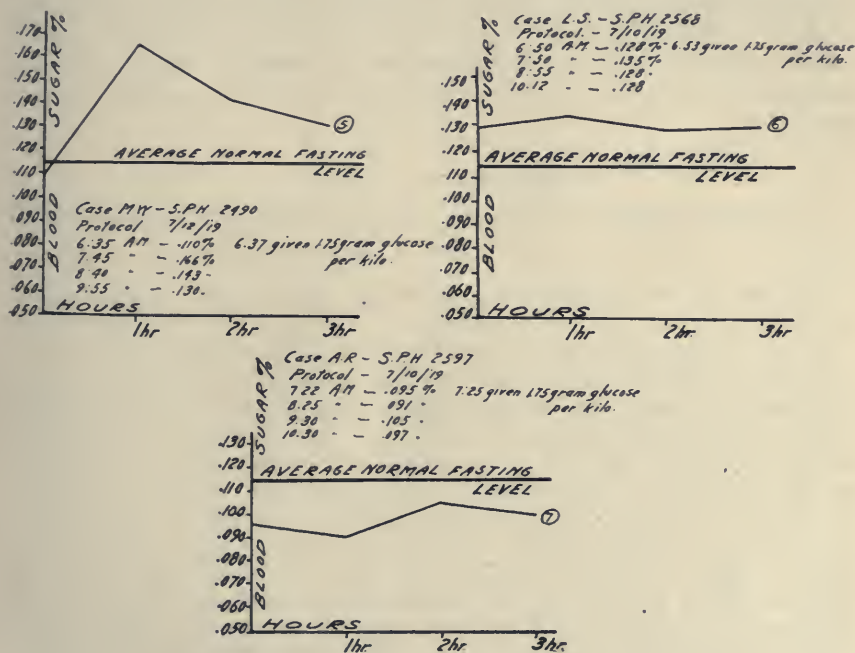 SUGAR %
BLOOD
.170
.160
.150
.140
.130
.120
.110
.100
.090
.080
.070
.060
.050
5
AVERAGE NORMAL FASTING
LEVEL
Case MW - S.PH 2490
Protocol 7/12/19
6:35 AM - .110% 6.37 given 1.75 gram glucose
7:45 " - .166% per kilo.
8:40 " - .143 "
9:55 " - .130 "
HOURS
1hr 2hr 3hr
SUGAR %
BLOOD
Case L.S. - S.PH 2568
Protocol - 7/10/19
6:50 A.M - .128% 6.53 given 1.75 gram glucose
7:50 " - .135% per kilo.
8:55 " - .128 "
10.12 " - .128
.150
.140
.130
.120
.110
.100
.090
.080
.070
.060
.050
6
AVERAGE NORMAL FASTING
LEVEL
HOURS
1hr 2hr 3hr
SUGAR %
BLOOD
Case A.R - S.PH 2597
Protocol - 7/10/19
7.22 AM - .095% 7:25 given 1.75 gram glucose
8.25 " - .091 " per kilo.
9.30 " - .105 "
10.30 " - .097 "
.130
.120
.110
.100
.090
.080
.070
.060
.050
AVERAGE NORMAL FASTING
LEVEL
7
HOURS
1hr. 2hr. 3hr.